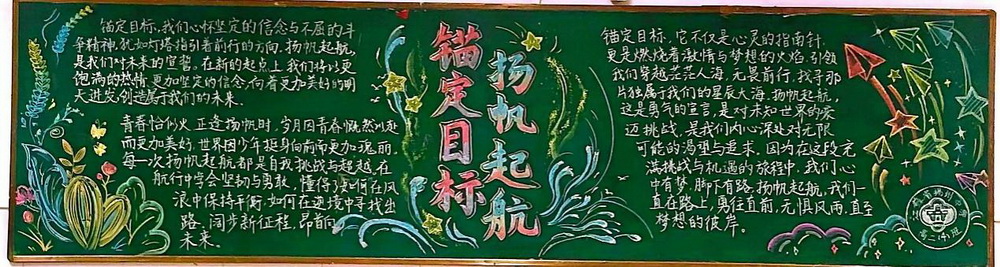 锚定目标,我们心怀坚定的信念与不屈的斗
争精神,犹如灯塔指引着前行的方向。扬帆起航,
是我们对未来的宣誓。在新的起点上,我们将以更
饱满的热情、更加坚定的信念,向着更加美好的明
天进发,创造属于我们的未来。
青春恰似火,正逢扬帆时。岁月因青春慨然以赴
而更加美好,世界因少年挺身向前而更加瑰丽。
每一次扬帆起航都是自我挑战与超越,在
航行中学会坚韧与勇敢,懂得了如何在风
浪中保持平衡,如何在逆境中寻找出
路。阔步新征程,昂首向
未来。
锚定目标
扬帆起航
锚定目标,它不仅是心灵的指南针,
更是燃烧着激情与梦想的火焰,引领
我们穿越茫茫人海,无畏前行,找寻那
片独属于我们的星辰大海。扬帆起航,
这是勇气的宣言,是对未知世界的豪
迈挑战,是我们内心深处对无限
可能的渴望与追求。因为在这段充
满挑战与机遇的旅程中,我们心
中有梦,脚下有路。扬帆起航,我们一
直在路上,勇往直前,无惧风雨,直至
梦想的彼岸。
高二(4)班